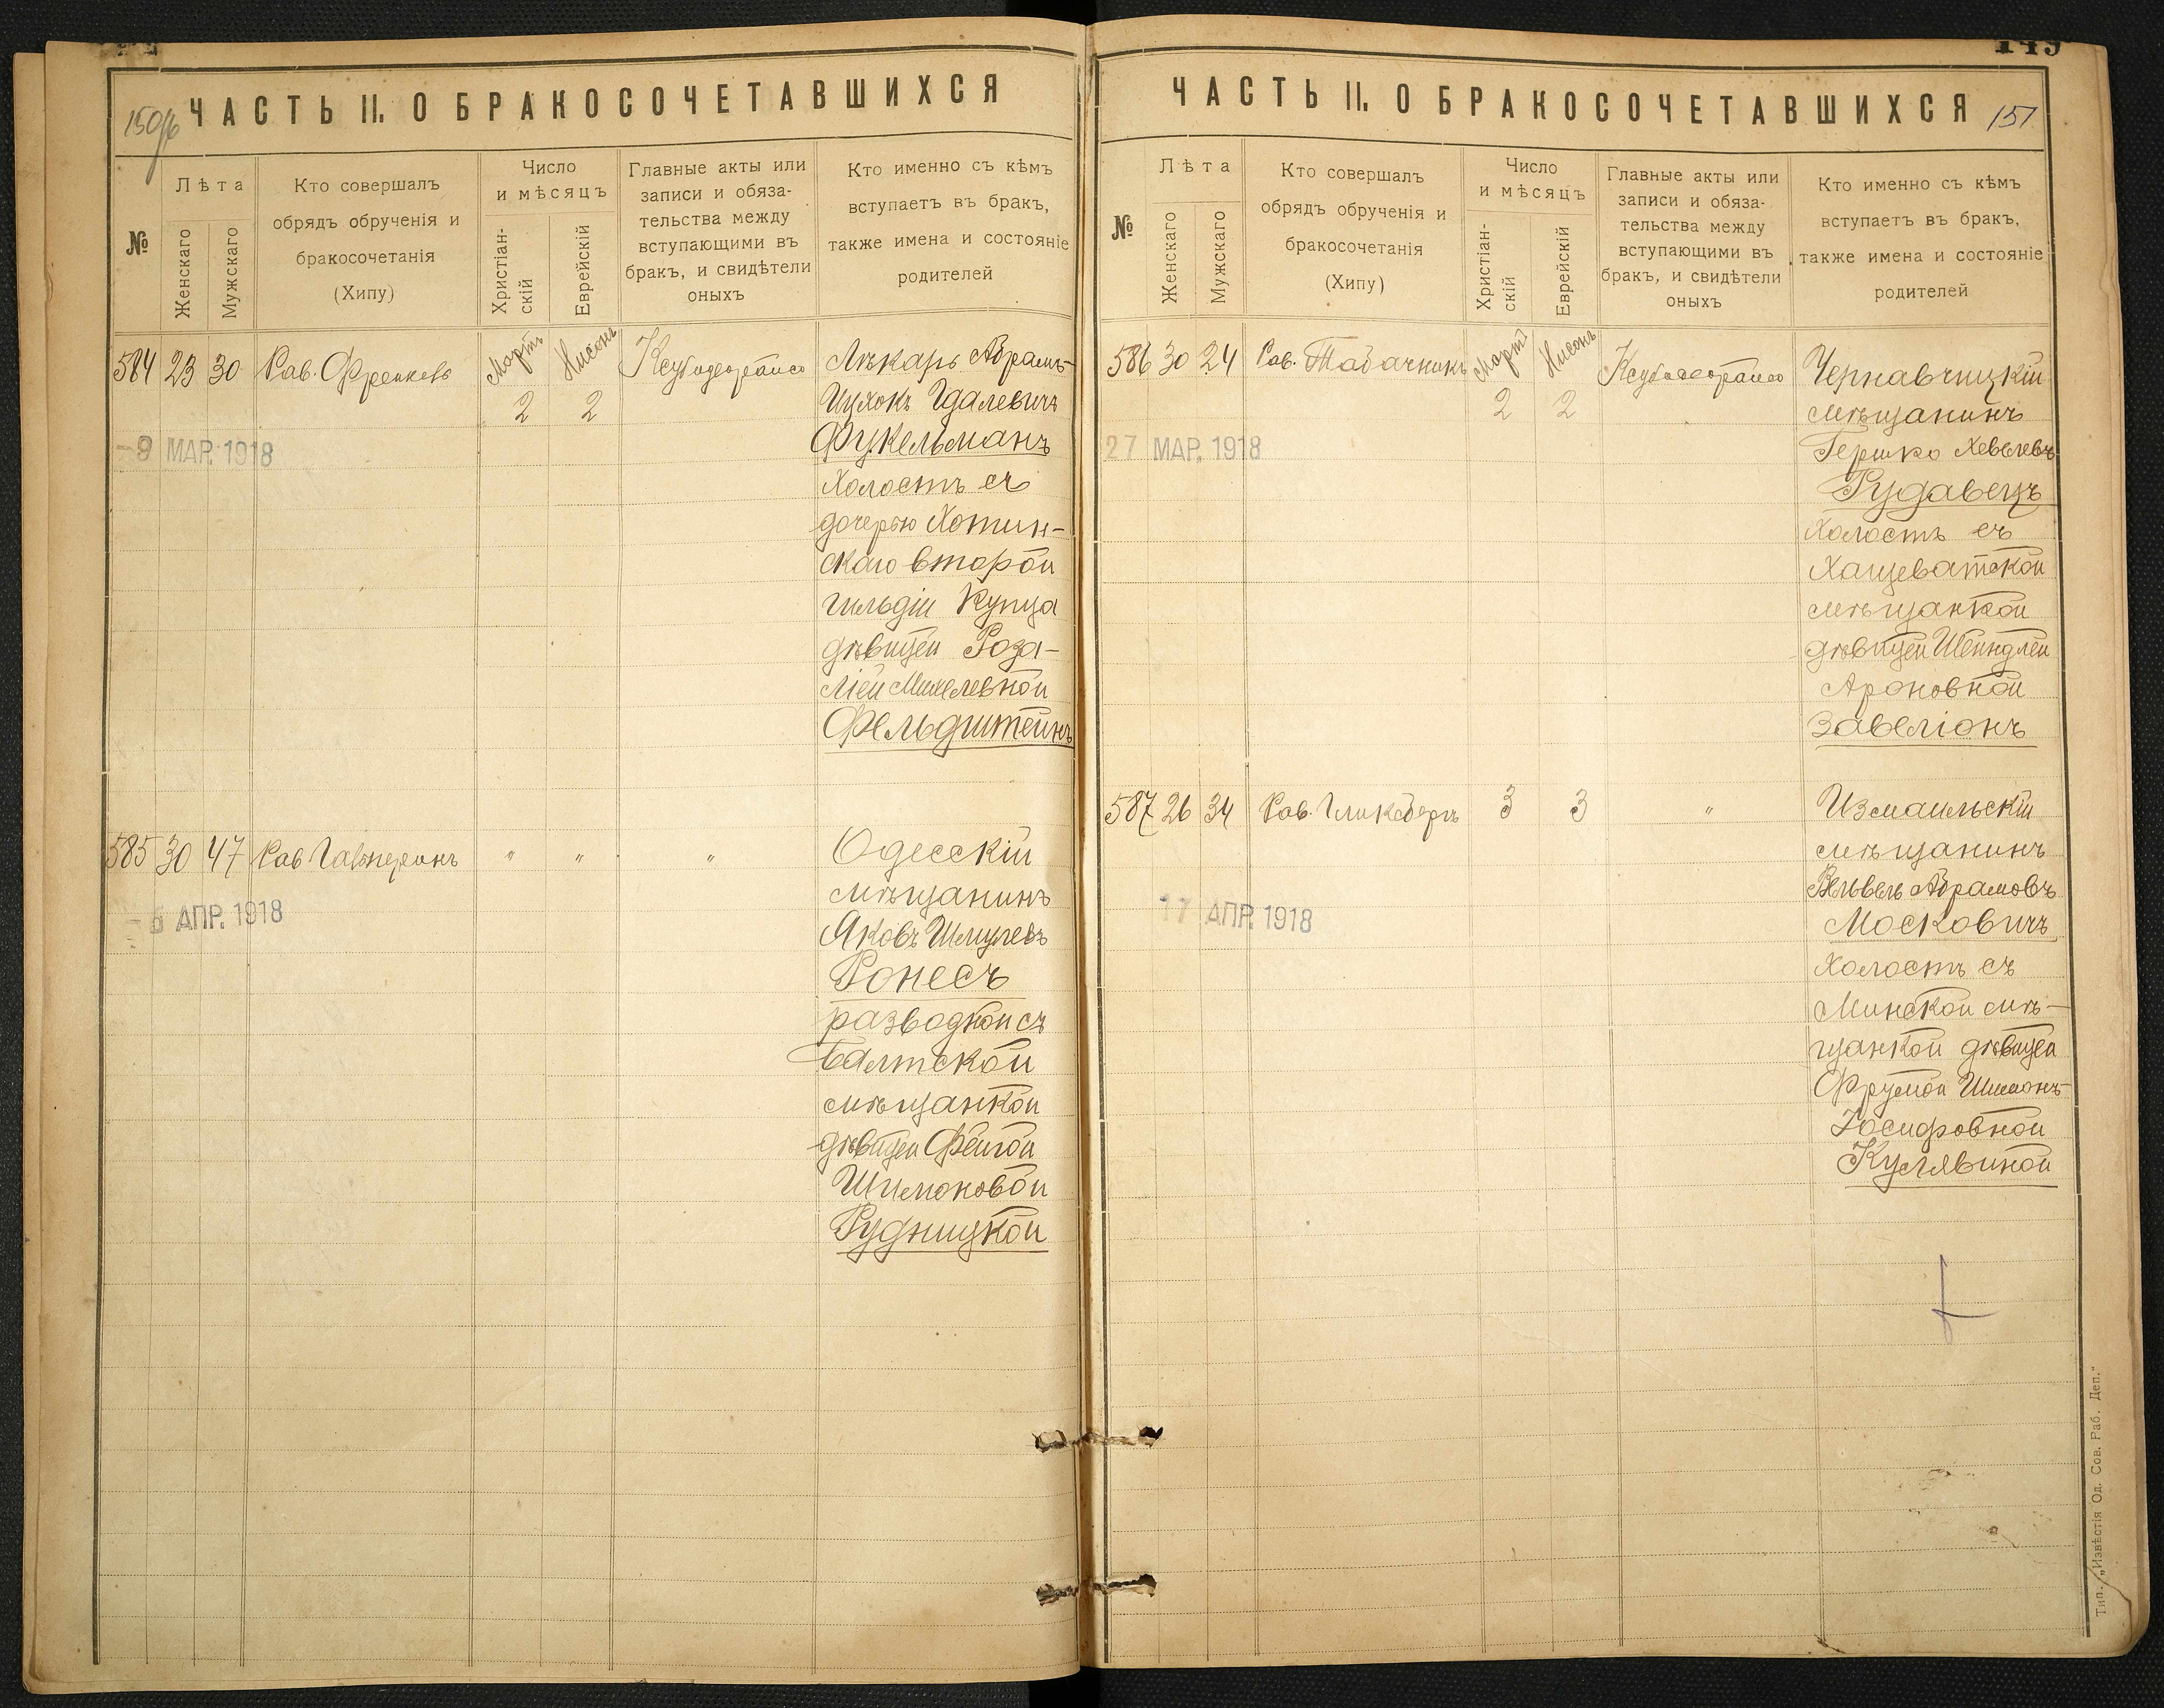 ЧАСТЬ II. О БРАКОСОЧЕТАВШИХСЯ
150об
№
Лѣта
Женскаго
Мужскаго
Кто совершалъ
обрядъ обрученія и
бракосочетанія
(Хипу)
Число
и мѣсяцъ
Христіан-
скій
Еврейскій
Главные акты или
записи и обяза-
тельства между
вступающими въ
бракъ, и свидѣтели
оныхъ
Кто именно съ кѣмъ
вступаетъ въ бракъ,
также имена и состояніе
родителей
584 23 30 Рав. Френкель Мартъ 2 Нисонъ 2
Лѣкарь Абрамъ-
Ицхокъ Гдалевичъ
Фукельманъ
Холостъ съ
дочерью Хотин-
скаго второй
гильдіи Купца
дѣвицей Роза-
ліей Михелевной
Фельдштейнъ
9 МАР. 1918
585 30 47 Рав Гальперинъ " " "
Одесскій
мѣщанинъ
Яковъ Шмулевъ
Ронесъ
разводной съ
Балтской
мѣщанкой
дѣвицей Фейгой
Шимоновой
Рудницкой
АПР. 1918
149
ЧАСТЬ II. О БРАКОСОЧЕТАВШИХСЯ
151
№
Лѣта
Женскаго
Мужскаго
Кто совершалъ
обрядъ обрученія и
бракосочетанія
(Хипу)
Число
и мѣсяцъ
Христіан-
скій
Еврейскій
Главные акты или
записи и обяза-
тельства между
вступающими въ
бракъ, и свидѣтели
оныхъ
Кто именно съ кѣмъ
вступаетъ въ бракъ,
также имена и состояніе
родителей
586 30 24 Рав. Табачникъ Мартъ 2 Нисонъ 2
Чернавчицкій
мѣщанинъ
Гершко Хевелевъ
Рудавецъ
Холостъ съ
Хащеватской
мѣщанкой
дѣвицей Шейндлей
Ароновной
Завеліонъ
27 МАР. 1918
587 26 34 Рав. Гликсбергъ 3 3 "
Измаильскій
мѣщанинъ
Вельвель Абрамовъ
Московичъ
Холостъ съ
Минской мѣ-
щанкой дѣвицей
Фрумой Шимонъ-
Іосифовной
Кулявиной
17 АПР. 1918
Тип. „Извѣстія Од. Сов. Раб. Деп."